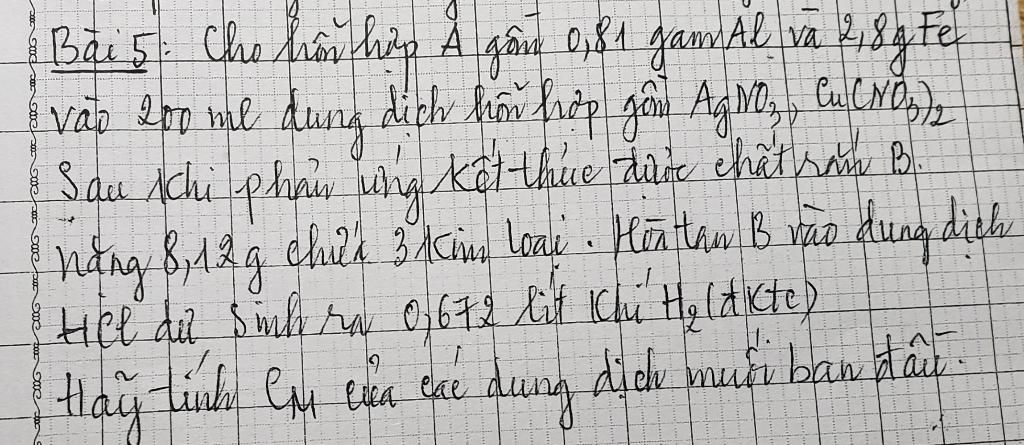 Bài 5: Cho hỗn hợp A gồm 0,81 gam Al và 2,8g Fe
vào 200 ml dung dịch hỗn hợp gồm AgNO3, Cu(NO3)2
Sau khi phản ứng kết thúc được chất rắn B.
nặng 8,12g chứa 3 kim loại. Hòa tan B vào dung dịch
HCl dư sinh ra 0,672 lít khí H2 (đktc)
Hãy tính CM của các dung dịch muối ban đầu.